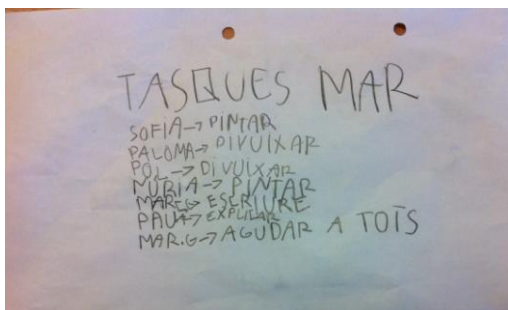 TASQUES MAR
SOFIA→PINTAR
PALOMA→DIVUIXAR
POL→DIVUIXAR
NÚRIA→PINTAR
MAR.G→ESCRIURE
PAU→EXPLICAR
MAR.G→AGUDAR A TOTS